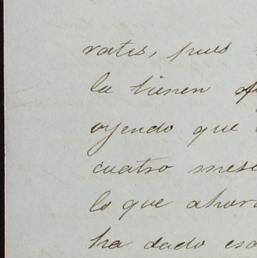 ratis, pues
la tienen
oyendo que
cuatro mese
lo que ahor
ha dado es